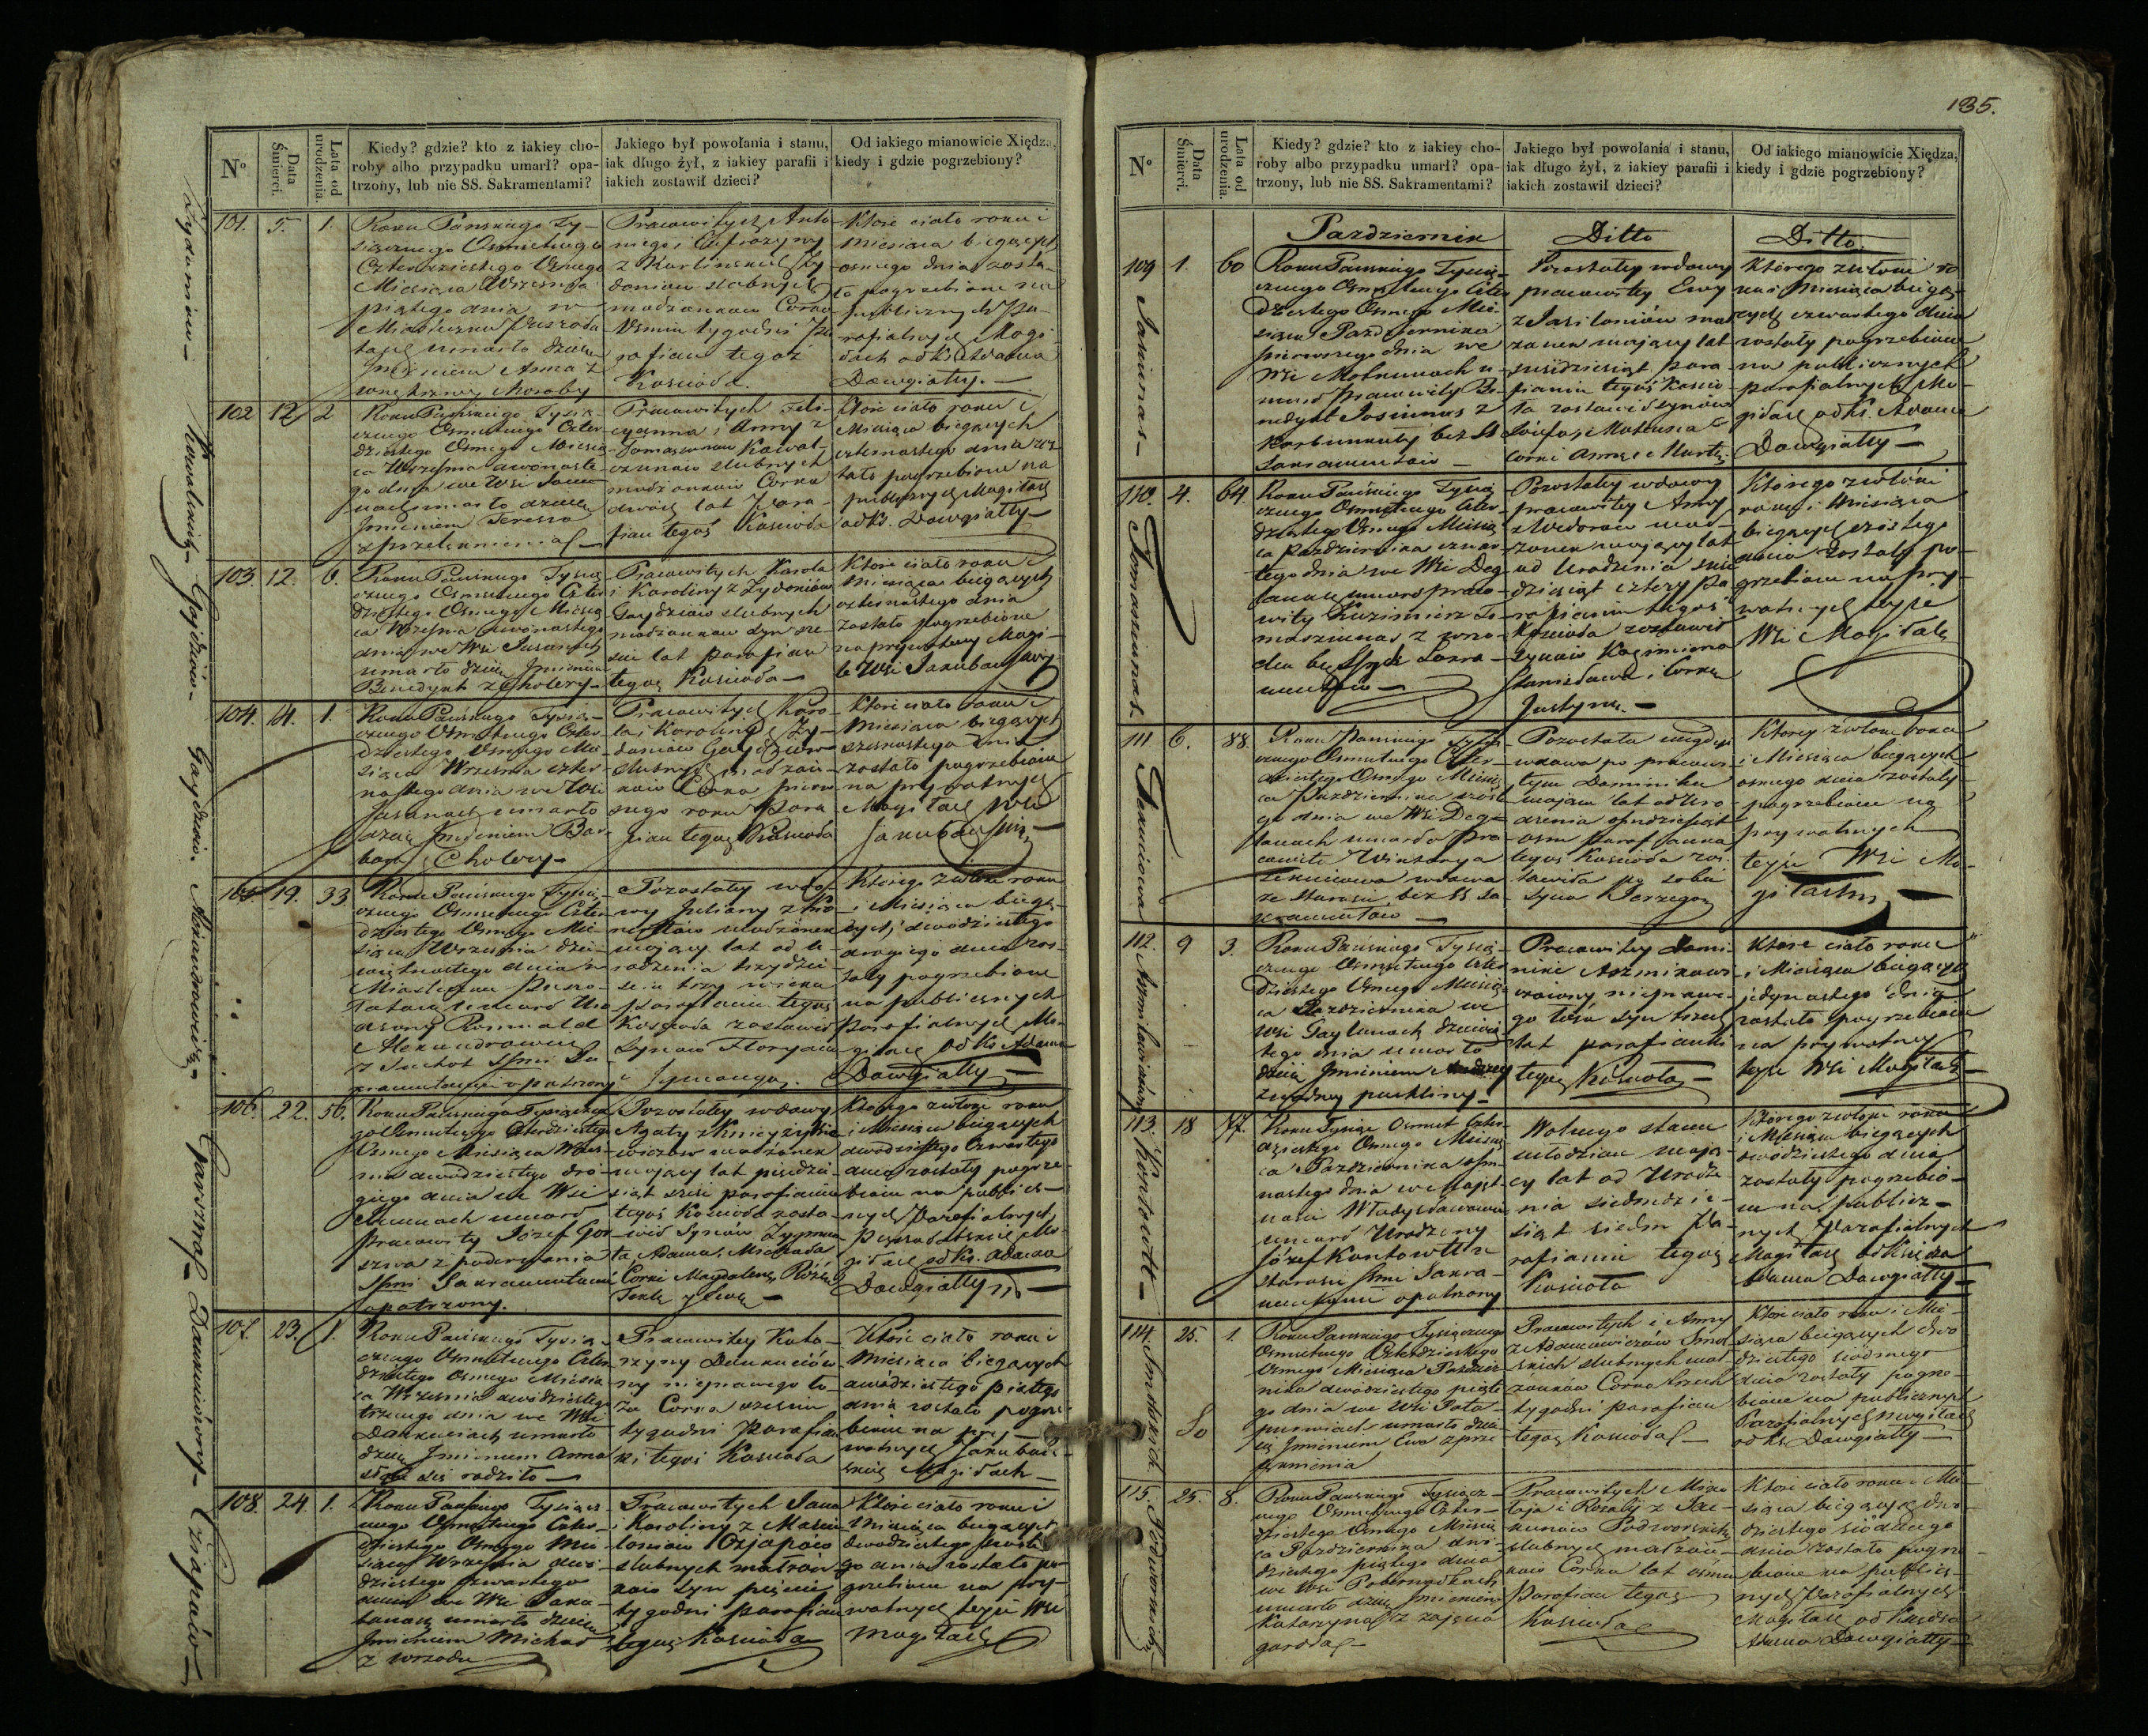 135.
Nº
Data Śmierci.
Lata od urodzenia.
Kiedy? gdzie? kto z iakiey cho-
roby albo przypadku umarł? opa-
trzony, lub nie SS. Sakramentami?
Jakiego był powołania i stanu,
iak długo żył, z iakiey parafii i
iakich zostawił dzieci?
Od iakiego mianowicie Xiędza,
kiedy i gdzie pogrzebiony?
101. 5. 1.
Roku Pańskiego Ty-
siącznego Osmsetnego
Czterdziestego Osmego
Miesiąca Września
piątego dnia w
Miasteczku
umarło dziecie
Imieniem Anna z
choroby
Pracowitych Anto-
niego i Eufrozyny
z Karlińskich Ży-
doniow slubnych
małżonkow Corka
Osmiu tygodni Pa-
rafian tegoż
Kościoła.
Ktore ciało roku i
Miesiąca biegących
osmego dnia zosta-
ło pogrzebione na
publicznych Pa-
rafialnych Mogi-
łach od Ks. Adama
Dowgiałły.
102 12 2
Roku Pańskiego Tysią-
cznego Osmsetnego Czter-
dziestego Osmego Miesią-
ca Września dwonaste-
go dnia we Wsi
umarło dziecie
Imieniem Teressa
Pracowitych Feli-
cyanna i Anny z
Tomaszunow Kowal-
slubnych
małżonkow Corka
dwóch lat Para-
fian tegoż Kościoła
Ktore ciało roku i
Miesiąca biegących
czternastego dnia zos-
tało pogrzebione na
publicznych Mogiłach
od Ks. Dowgiałły
103 12. 6.
Roku Pańskiego Tysią-
cznego Osmsetnego Czter-
dziestego Osmego Miesią-
ca Września dwonastego
dnia we Wsi Jusanach
umarło dziecie Imieniem
Benedykt z Cholery
Pracowitych Karola
i Karoliny z Żydoniów
Gaydziow slubnych
małżonkow Syn sze-
sciu lat parafian
tegoż Kościoła
Ktore ciało roku i
Miesiąca biegących
czternastego dnia
zostało pogrzebione
na prywatnych Mogi-
łach Wsi
104. 14. 1.
Roku Pańskiego Tysią-
cznego Osmsetnego Czter-
dziestego Osmego Mie-
siąca Września czter-
nastego dnia we Wsi
Jusanach umarło
dziecie Imieniem Bar-
bara z Cholery
Pracowitych Karo-
la i Karoliny z Ży-
doniow Gaydziow
slubnych małżon-
kow Corka pierw-
szego roku Para-
fian tegoż Kościoła
Ktore ciało roku i
Miesiąca biegących
szesnastego dnia
zostało pogrzebione
na prywatnych
Mogiłach Wsi
105. 19. 33.
Roku Pańskiego Tysią-
cznego Osmsetnego Czter-
dziestego Osmego Mie-
siąca Września dzie-
więtnastego dnia w
Miasteczku
umarł Uro-
dzony Romuald
Alexandrowicz
z Suchot SSmi Sa-
kramentami opatrzony
Pozostałey wdo-
wy Julianny z
małżonek
mający lat od u-
rodzenia trzydzie-
scie trzy wieku
parafianin tegoż
Kościoła zostawił
Synow Floryana
i Symona.
Ktorego zwłoki roku
i Miesiąca biegą-
cych dwódziestego
drugiego dnia zos-
tały pogrzebione
na publicznych
Parafialnych Mo-
giłach od Ks. Adama
Dowgiałły
106 22. 56.
Roku Pańskiego Tysiączne-
go Osmsetnego Czterdziestego
Osmego Miesiąca Wrze-
snia dwódziestego dru-
giego dnia we Wsi
umarł
Pracowity Józef Gor-
szwa z poderwania
SSmi Sakramentami
opatrzony.
Pozostałey wdowy
Agaty z
małżonek
mający lat pięćdzie-
siąt sześć parafianin
tegoż Kościoła zosta-
wił Synów Zygmun-
ta Adama, Michała
Corki Magdalenę, Różę
Teklę y Ewę
Ktorego zwłoki roku
i Miesiąca biegących
dwódziestego Czwartego
dnia zostały pogrze-
bione na publicz-
nych Parafialnych
Mo-
giłach od Ks. Adama
Dowgiałły
107. 23. 1.
Roku Pańskiego Tysią-
cznego Osmsetnego Czter-
dziestego Osmego Miesią-
ca Września dwódziestego
trzeciego dnia we Wsi
Daukuciach umarło
dziecie Imieniem Anna
słabe się rodziło
Pracowitey Kata-
rzyny Daukuciow-
ny nieprawego ło-
ża Corka osmiu
tygodni Parafian-
ki tegoż Kościoła
Ktore ciało roku i
Miesiąca biegących
dwódziestego piątego
dnia zostało pogrze-
bione na pry-
watnych
Mogiłach
108. 24. 1.
Roku Pańskiego Tysiącz-
nego Osmsetnego Czter-
dziestego Osmego Mie-
siąca Września dwó-
dziestego Czwartego
dnia we Wsi
umarło dziecie
Imieniem Michał
z wrzodu
Pracowitych Jana
i Karoliny z
Czjapow
slubnych małżon-
kow Syn pięciu
tygodni Parafian
tegoż Kościoła
Ktore ciało roku i
Miesiąca biegących
dwódziestego szoste-
go dnia zostało po-
grzebione na pry-
watnych teyże Wsi
Mogiłach
Żydoniow
Kowalewskich
Gajdziow
Gaydziow
Alexandrowicz
Gorszwa
Daukuciowny
Czjapów
Nº
Data Śmierci.
Lata od urodzenia.
Kiedy? gdzie? kto z iakiey cho-
roby albo przypadku umarł? opa-
trzony, lub nie SS. Sakramentami?
Jakiego był powołania i stanu,
iak długo żył, z iakiey parafii i
iakich zostawił dzieci?
Od iakiego mianowicie Xiędza,
kiedy i gdzie pogrzebiony?
Pazdziernik Ditto Ditto
109 1. 60
Jasiunas
Roku Pańskiego Tysią-
cznego Osmsetnego Czter-
dziestego Osmego Mie-
siąca Pazdziernika
pierwszego dnia we
Wsi u-
marł Pracowity Be-
nedykt Jasiunas z
bez SS
Sakramentow
Pozostałey wdowy
pracowitey Ewy
z małż-
żonek mający lat
sześćdziesiąt para-
fianin tegoż Kościo-
ła zostawił synów
Józefa, Mateusza
Corki Annę i Martę
Ktorego zwłoki ro-
ku i Miesiąca biegą-
cych czwartego dnia
zostały pogrzebione
na publicznych
parafialnych Mo-
giłach od Ks. Adama
Dowgiałły
110. 4. 64.
Tomaszunas
Roku Pańskiego Tysią-
cznego Osmsetnego Czter-
dziestego Osmego Miesią-
ca Pazdziernika czwar-
tego dnia we Wsi Deg-
umarł praco-
wity Kazimierz To-
maszunas z wrzo-
du bez SSych Sakra-
mentow
Pozostałey wdowy
pracowitey Anny
z małż-
żonek mający lat
od Urodzenia sześć-
dziesiąt cztery Pa-
rafianin tegoż
Kościoła zostawił
Synów Kazimierza
Stanisława i Corkę
Justynę.
Ktorego zwłoki
roku i Miesiąca
biegących szostego
dnia zostały po-
grzebione na pry-
watnych teyże
Wsi Mogiłach
111 6. 88.
Roku Pańskiego Tysią-
cznego Osmsetnego Czter-
dziestego Osmego Miesią-
ca Pazdziernika szoste-
go dnia we Wsi Deg-
umarła Pra-
cowita Wiktorya
wdowa
ze starości bez SS Sa-
kramentow
Pozostała niegdyś
wdowa po pracowi-
tym Dominiku
mająca lat od Uro-
dzenia osmdziesiąt
osm Parafianka
tegoż Kościoła zos-
tawiła po sobie
Syna Jerzego
Ktorey zwłoki roku
i Miesiąca biegących
osmego dnia zostały
pogrzebione na
prywatnych
teyże Wsi Mo-
giłach
112. 9 3.
Roku Pańskiego Tysią-
cznego Osmsetnego Czter-
dziestego Osmego Miesią-
ca Pazdziernika we
Wsi Gaylunach dziewią-
tego dnia umarło
dziecie Imieniem Andrzey
z puchliny
Pracowitey Domi-
niki
nieprawe-
go łoża syn trzech
lat parafianki
tegoż Kościoła
Ktore ciało roku
i Miesiąca biegących
jedynastego dnia
zostało pogrzebione
na prywatnych
teyże Wsi Mogiłach
113. 18 77.
Kontowtt
Roku Tysiąc Osmset Czter-
dziestego Osmego Miesią-
ca Pazdziernika osm-
nastego dnia w Mająt-
nosci Władysławowie
umarł Urodzony
Józef Kontowtt z
starosci SSmi Sakra-
mentami opatrzony
Wolnego stanu
młodzian mają-
cy lat od Urodze-
nia siedmdzie-
siąt siedm Pa-
rafianin tegoż
Kościoła
Ktorego zwłoki roku
i Miesiąca biegących
dwódziestego dnia
zostały pogrzebio-
ne na publicz-
nych Parafialnych
Mogiłach od Księdza
Adama Dowgiałły
114. 25. 1.
So
Roku Pańskiego Tysiącznego
Osmsetnego Czterdziestego
Osmego Miesiąca Pazdzier-
nika dwódziestego piąte-
go dnia we Wsi
umarło dzie-
cie Imieniem Ewa z prze-
lęknienia
Pracowitych i Anny
z Adamowiczów Smol-
skich slubnych mał-
żonków Corka trzech
tygodni parafian
tegoż Kościoła
Ktore ciało roku i Mie-
siąca biegących dwó-
dziestego siódmego
dnia zostały pogrze-
bione na publicznych
Parafialnych mogiłach
od Ks. Dowgiałły
115. 25. 8.
Roku Pańskiego Tysiącz-
nego Osmsetnego Czter-
dziestego Osmego Miesią-
ca Pazdziernika dwó-
dziestego piątego dnia
we Wsi
umarło dziecie Imieniem
Katarzyna z zajęcia
gardła
Pracowitych Miko-
łaja i Rozalij z
Podworskich
slubnych małżon-
kow Corka lat osmiu
Parafian tegoż
Kościoła
Ktore ciało roku i Mie-
siąca biegących dwó-
dziestego siódmego
dnia zostało pogrze-
bione na publicz-
nych Parafialnych
Mogiłach od Księdza
Adama Dowgiałły